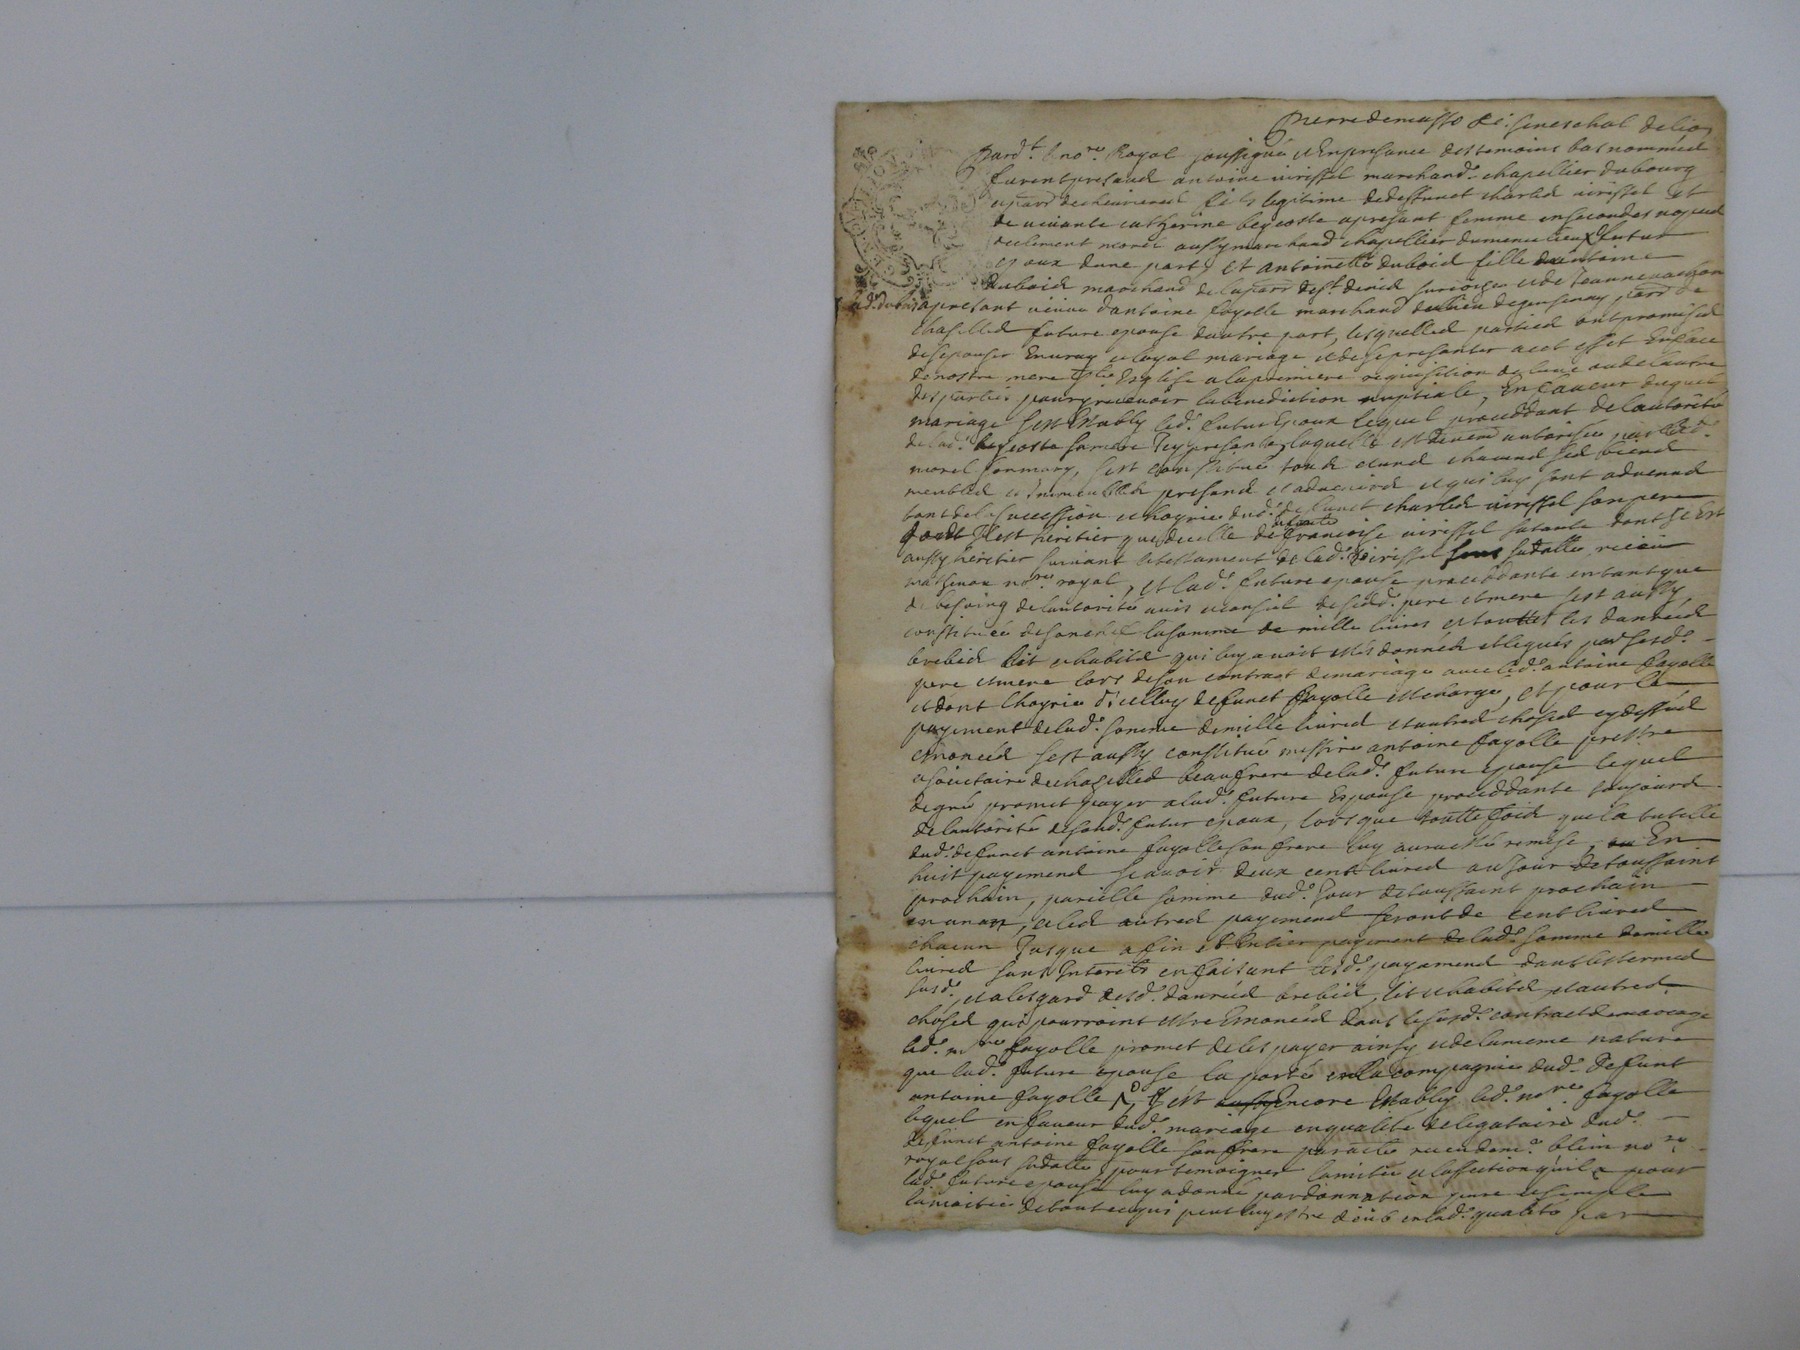 Pierre de masso &c. seneschal de lion
Pard.t le no.re Royal soussigné et En presance des temoins bas nommés
furent presans antoine virissel marchand chapellier du bourg
et parr. de cheurieres fils legitime de deffunct charles virissel et
de vivante catherine beycoste a presant femme en secondes nopces
de clement morel aussy marchand chapellier du meme lieu futur
epoux dune part, et antoinette duboies fille d'antoine
duboies marchand de la parr. de st. denis sur coize et de Jeanne vachon
lad. dubois a presant veuve d'antoine fayolle marchand du lieu de parr. de
chaselles future epouse dautre part, lesquelles parties ont promis
de sepouser En vray et loyal mariage et de se presanter a cet effet En face
de nostre mere s.te Eglise a la premiere requisition de lune ou de lautre
des parties pour y recevoir la benediction nuptiale, En faveur duquel
mariage s'est Estably led. futur Epoux lequel proceddant de lautorité
de lad. beycoste sa mere Icy presante laquelle est autorisée par led.
morel son mary, s'est constitué tous et uns chacuns ses biens
meubles et Immeubles presans et advenir et qui luy sont advenus
tant de la succession et hoyrie dud. deffunct charles virissel son pere
dont Il est heritier que de celle de francoise virissel sa tante dont Il est
aussy heritier suivant le testament de lad. virissel sous sa datte receu
no.re royal, et lad. future epouse proceddante en tant que
de besoing de lautorité avis et conseil de sesd. pere et mere s'est aussy
constituée de son chef la somme de mille livres et touttes les danrées
brebies lit et habits qui luy avoit estés donnés et legués par sesd.
pere et mere lors de son contract de mariage avec led. antoine fayolle
et dont l'hoyrie d'icelluy defunct fayolle est chargé, et pour le
payement de lad. somme de mille livres et autres choses cy dessus
enoncés s'est aussy constitué messire antoine fayolle prestre
et societaire de chaselles beaufrere de lad. future epouse lequel
de gré promet payer a lad. future Espouse proceddante toujours
de lautorité de sond. futur epoux, lors que touttefois que la tutelle
dud. defunct antoine fayolle son frere luy aura esté remise, En
huit payemens scavoir deux cents livres au Jour de toussaint
prochain, pareille somme dud. Jour de toussaint prochain
en un an, et les autres payemens seront de cent livres
chacun Jusque a fin et Entier payement de lad. somme de mille
livres sans Interets en faisant lesd. payemens dans les termes
susd. et a lesgard desd. danrées brebies, lit et habits et autres
choses qui pourroint estre Enoncés dans le susd. contract de mariage
led. m.re fayolle promet de les payer ainsy et de la meme nature
que lad. future epouse la porté en la compagnie dud. defunt
antoine fayolle, s'est encore Estably led. m.re fayolle
lequel en faveur dud. mariage en qualité de legataire dud.
defunct antoine fayolle son frere par acte receu blein no.re
royal sous sa datte pour temoigner lamitié et laffection qu'il a pour
lad. future epouse luy a donné par donnation pure et simple
la moitié de tout ce qui peut luy estre deub en lad. qualité par